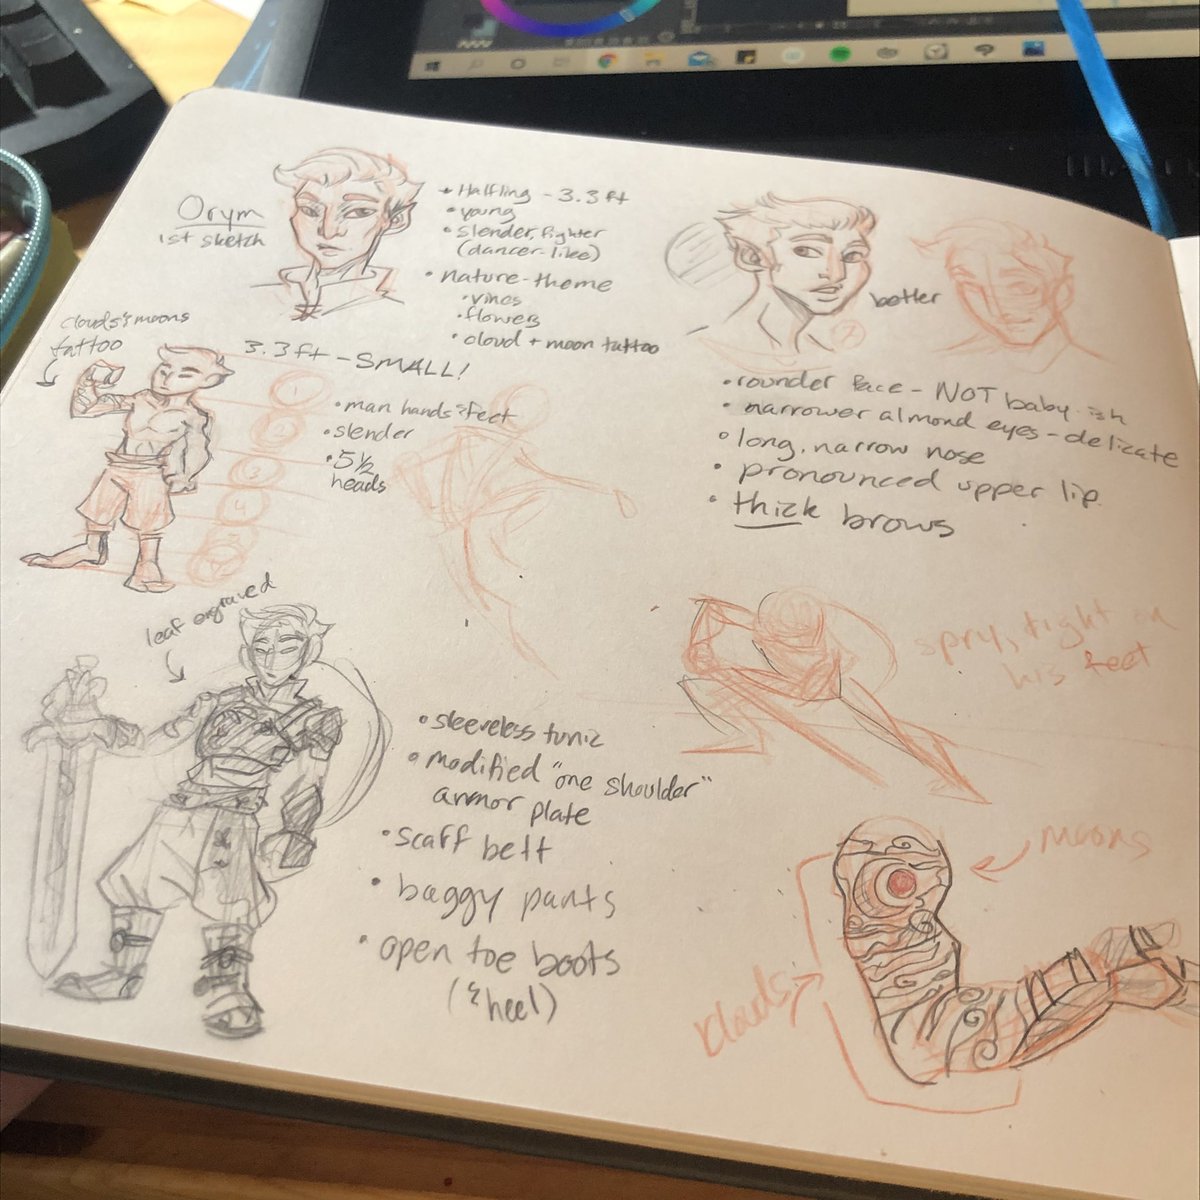 Orym
1st sketch
• Halfling - 3.3 ft
• young
• slender, fighter
(dancer-like)
• nature-theme
• vines
• flowers
• cloud + moon tattoo
clouds & moons
tattoo
3.3ft - SMALL!
• man hands & feet
• slender
• 5 1/2
heads
1
2
3
4
5
better
• rounder face - NOT baby-ish
• narrower almond eyes - delicate
• long, narrow nose
• pronounced upper lip
• thick brows
leaf engraved
• sleeveless tunic
• modified "one shoulder"
armor plate
• scarf belt
• baggy pants
• open toe boots
(& heel)
spry, light on
his feet
moons
clouds